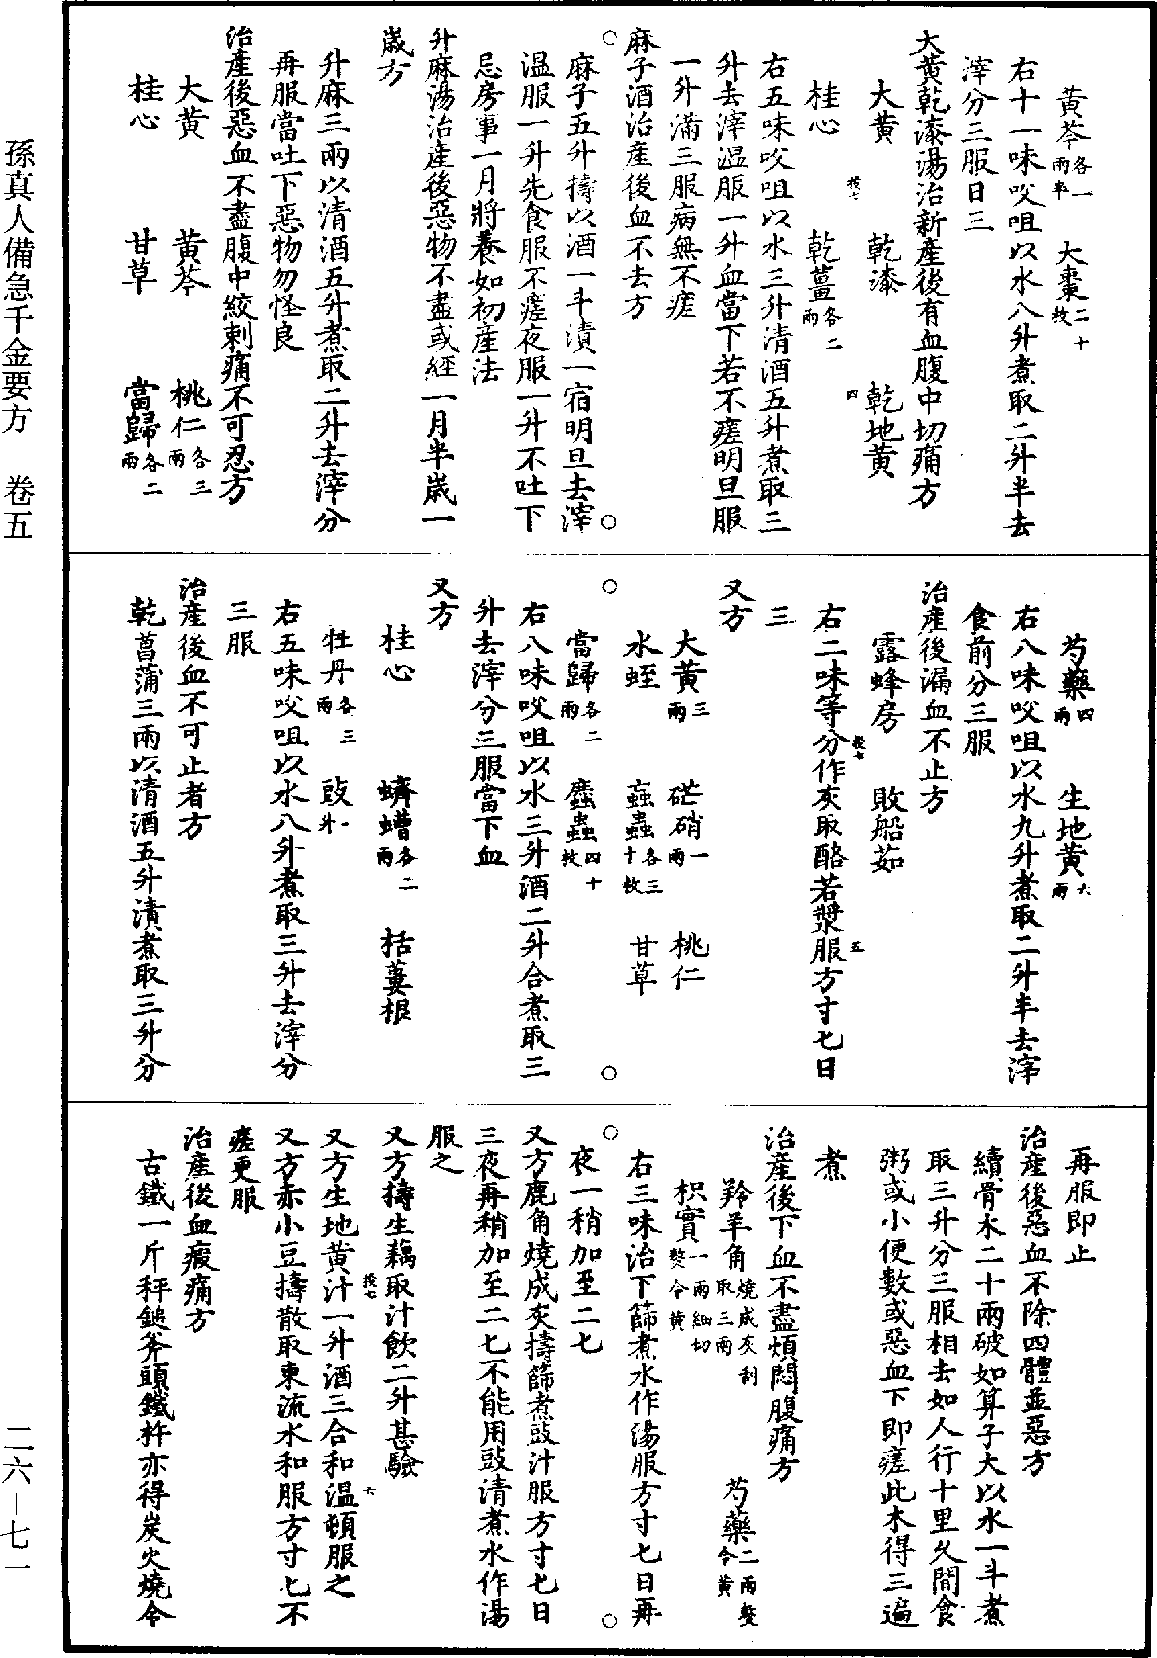 黃芩各一兩半　大棗二十枚
右十一味㕮咀以水八升煮取二升半去
滓分三服日三
大黃乾漆湯治新產後有血腹中切痛方
大黃　乾漆　乾地黃
桂心　乾薑各二兩
右五味㕮咀以水三升清酒五升煮取三
升去滓溫服一升血當下若不瘥明旦服
一升滿三服病無不瘥
麻子酒治產後血不去方
麻子五升擣以酒一斗漬一宿明旦去滓
溫服一升先食服不瘥夜服一升不吐下
忌房事一月將養如初產法
升麻湯治產後惡物不盡或經一月半歲一
歲方
升麻三兩以清酒五升煮取二升去滓分
再服當吐下惡物勿怪良
治產後惡血不盡腹中絞刺痛不可忍方
大黃　黃芩　桃仁各三兩
桂心　甘草　當歸各二兩
芍藥四兩　生地黃六兩
右八味㕮咀以水九升煮取二升半去滓
食前分三服
治產後漏血不止方
露蜂房　敗船茹
右二味等分作灰取酪若漿服方寸匕日
三
又方
大黃三兩　芒硝一兩　桃仁
水蛭　䖟蟲各三十枚　甘草
當歸各二兩　䗪蟲四十枚
右八味㕮咀以水三升酒二升合煮取三
升去滓分三服當下血
又方
桂心　蠐螬各二兩　栝蔞根
牡丹各三兩　豉一升
右五味㕮咀以水八升煮取三升去滓分
三服
治產後血不可止者方
乾菖蒲三兩以清酒五升漬煮取三升分
再服即止
治產後惡血不除四體並惡方
續骨木二十兩破如算子大以水一斗煮
取三升分三服相去如人行十里久間食
粥或小便數或惡血下即瘥此木得三遍
煮
治產後下血不盡煩悶腹痛方
羚羊角燒成灰刮取三兩　芍藥二兩熬令黃
枳實一兩細切熬令黃
右三味治下篩煮水作湯服方寸匕日再
夜一稍加至二匕
又方鹿角燒成灰擣篩煮豉汁服方寸匕日
三夜再稍加至二匕不能用豉清煮水作湯
服之
又方擣生藕取汁飲二升甚驗
又方生地黃汁一升酒三合和溫頓服之
又方赤小豆擣散取東流水和服方寸匕不
瘥更服
治產後血瘕痛方
古鐵一斤秤鎚斧頭鐵杵亦得炭火燒令
孫真人備急千金要方　卷五
二六—七一